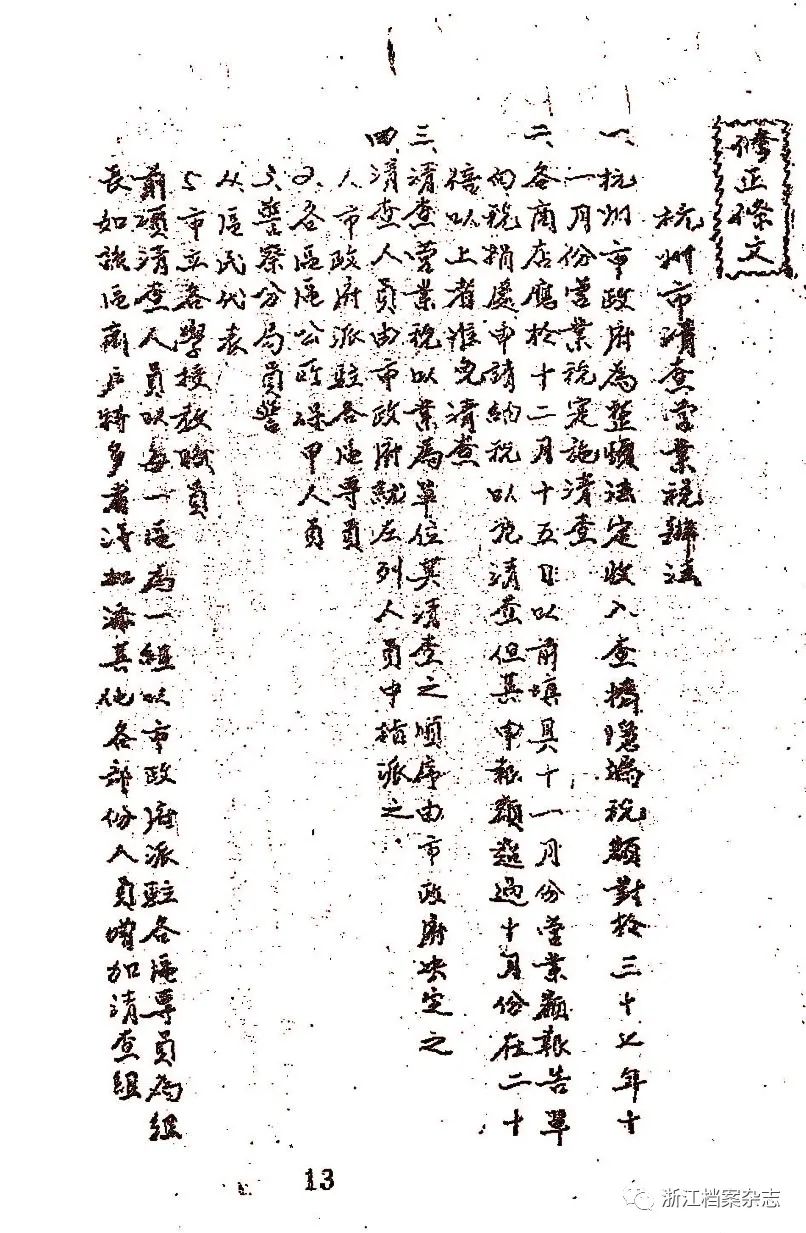 修正條文
杭州市清查營業稅辦法
一、杭州市政府為整頓法定收入查擠隱漏稅額對於三十七年十
一月份營業稅定施清查
二、各商店應於十二月十五日以前填具十一月份營業額報告單
向稅捐處申請納稅以凭清查但其申報額超過十月份在二十
倍以上者准免清查
三、清查營業稅以業為單位其清查之順序由市政府决定之
四、清查人員由市政府就左列人員中指派之
1、市政府派駐各區專員
2、各區區公所保甲人員
3、警察分局員警
4、區民代表
5、市立各學校教職員
前項清查人員以每一區為一組以市政府派駐各區專員為組
長如該區商戶特多者得加派其他各部份人員增加清查組
13
浙江档案杂志